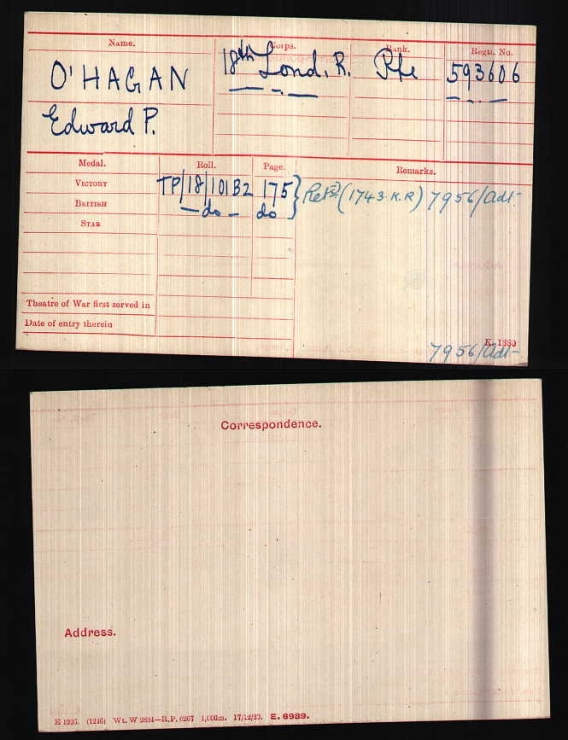 Name. Corps. Rank. Regtl. No.
O'HAGAN 18th Lond. R. Rfn 593606
Edward P.
Medal. Roll. Page. Remarks.
VICTORY TP/18/101B2 175 } Retd (1743. K.R) 7956/Adt
BRITISH — do — do
STAR
Theatre of War first served in
Date of entry therein
E. 1380
7956/Adt
Correspondence.
Address.
E 1326. (1216) Wt. W 2834—R.P. 6267 1,000m. 17/12/23. E. 6989.